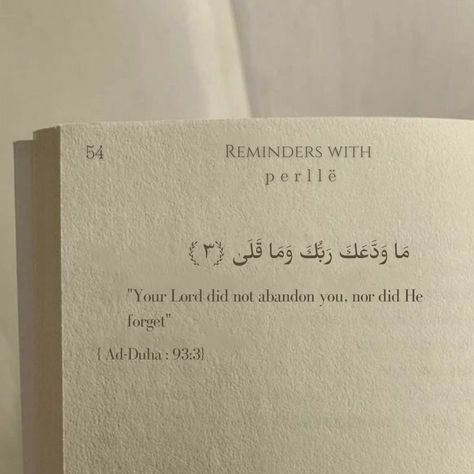 54
REMINDERS WITH
perllë
مَا وَدَّعَكَ رَبُّكَ وَمَا قَلَى ﴿٣﴾
"Your Lord did not abandon you, nor did He
forget"
{ Ad-Duha : 93:3}